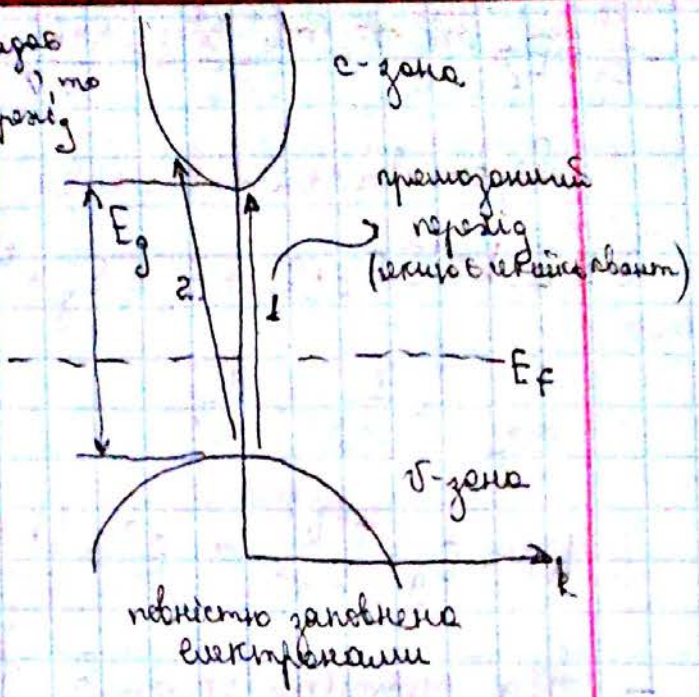 с-зона
прямозонний
перехід
(якщо є якийсь квант)
Eg
2
1
EF
v-зона
k
повністю заповнена
електронами